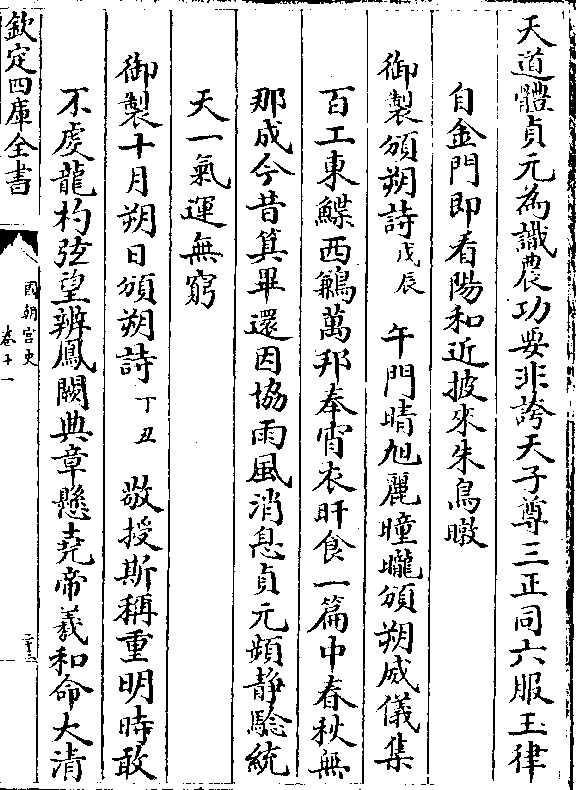 天道體貞元為識農功要非誇天子尊三正同六服玉律
自金門即看陽和近披來朱鳥暾
御製頒朔詩戊辰　午門晴旭麗曈曨頒朔威儀集
百工東鰈西鶼萬邦奉宵衣旰食一篇中春秋無
那成今昔箕畢還因協雨風消息貞元頻靜驗統
天一氣運無窮
御製十月朔日頒朔詩丁丑　敬授斯稱重明時敢
不虔龍杓弦望辨鳳闕典章懸堯帝羲和命大清
欽定四庫全書
國朝宮史
卷十一
二十三